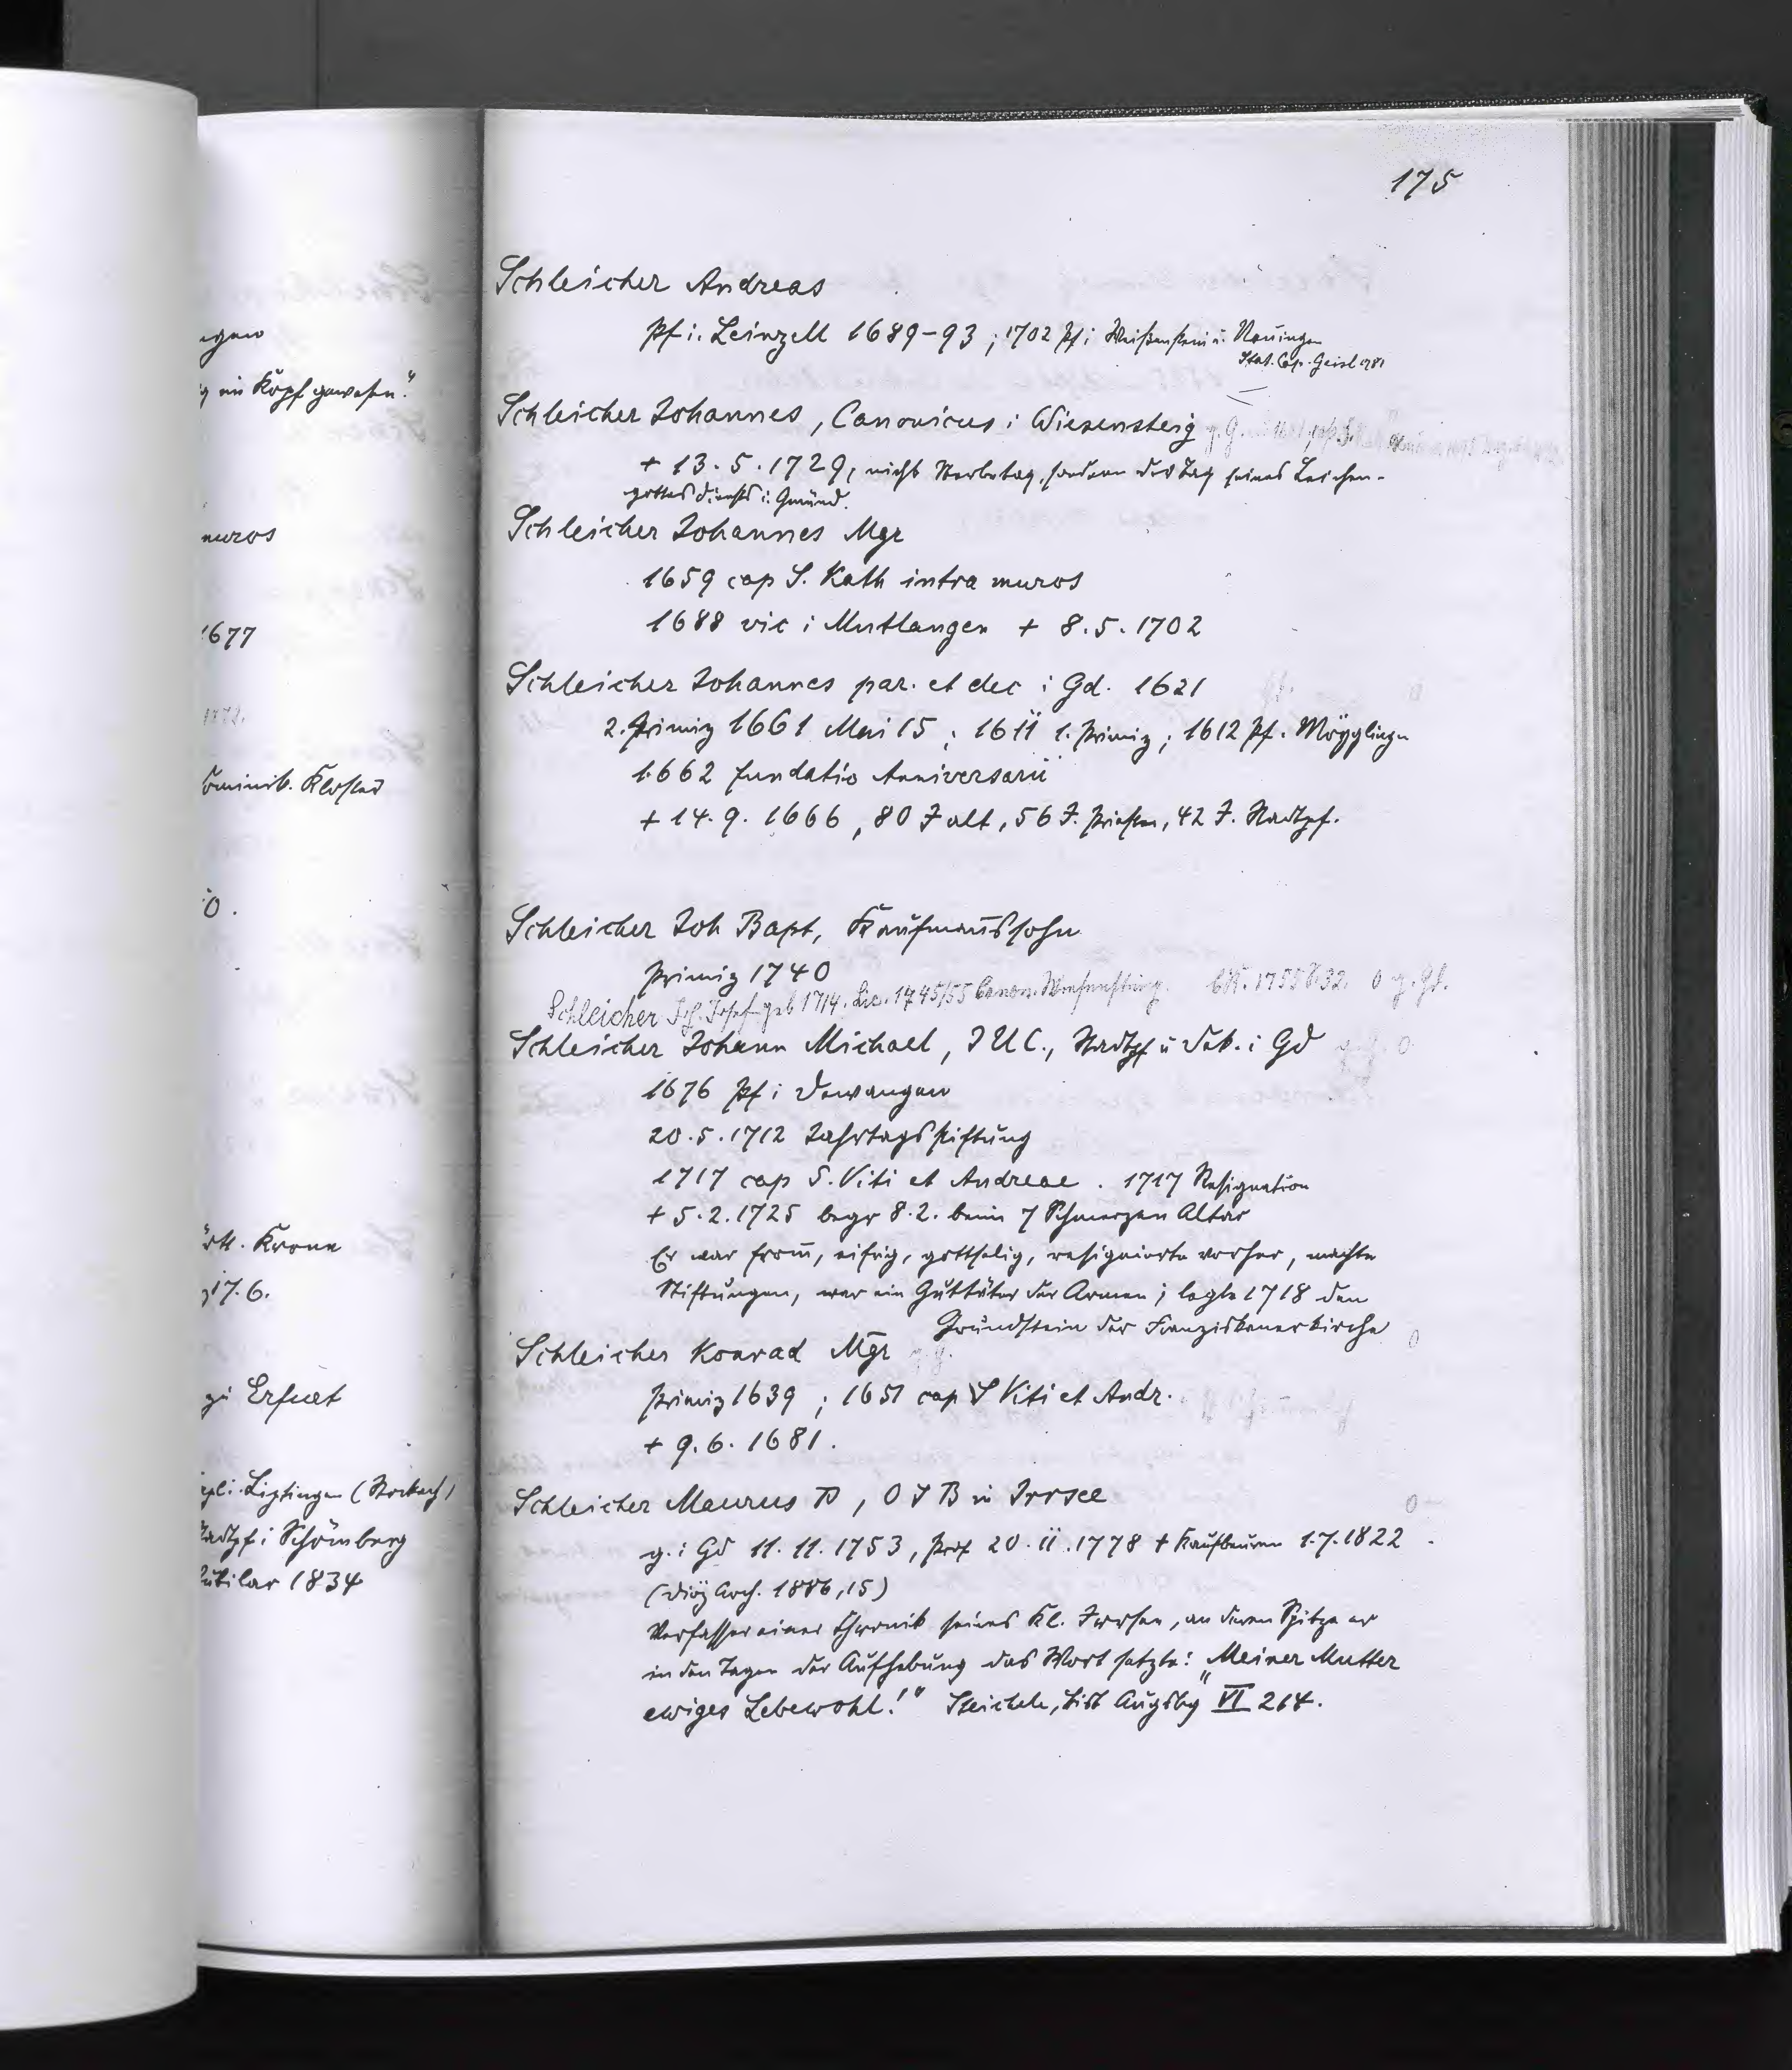 175
Schleicher Andreas
Pf i. Leinzell 1689-93; 1702 Pf i Weißenstein u. Nenningen
Stat. Cap. Geisl 1781
Schleicher Johannes, Canonicus i Wiesensteig
+ 13.5.1729, nicht Sterbetag, sondern der Tag seines Leichen-
gottesdiensts i. Gmünd.
Schleicher Johannes Mgr
1659 cap S. Kath intra muros
1688 vic i Mutlangen + 8.5.1702
Schleicher Johannes par. et dec i Gd. 1621
2. Primiz 1661 Mai 15; 1611 1. Primiz; 1612 Pf. Mögglingen
1662 fundatio Anniversarii
+ 14.9.1666, 80 J alt, 56 J. Priester, 42 J. Stadtpf.
Schleicher Joh Bapt, Kaufmanns sohn
Primiz 1740
Schleicher Joh. Josef geb 1714. Lic. 1745/55 Canon. Wiesensteig. 1755 S. 32. 0 g. Gd.
Schleicher Johann Michael, J U C., Stadtpf u Dek. i Gd
1676 Pf i Dewangen
20.5.1712 Jahrtagsstiftung
1717 cap S. Viti et Andreae. 1717 Resignation
+ 5.2.1725 begr 8.2. beim 7 Schmerzen Altar
Er war from̄, eifrig, gottselig, resignierte vorher, machte
Stiftungen, war ein Guttäter der Armen; legte 1718 den
Grundstein der Franziskanerkirche
Schleicher Konrad Mgr
Primiz 1639; 1651 cap S Viti et Andr.
+ 9.6.1681.
Schleicher Maurus P, O S B in Irrsee
g. i Gd 11.11.1753, Prof 20.11.1778 + Kaufbeuren 1.7.1822.
(Diöz Arch. 1886, 15)
Verfasser einer Chronik seines Kl. Irrsee, an deren Spitze er
in den Tagen der Aufhebung das Wort setzte: „Meiner Mutter
ewiges Lebewohl!" Steichele, Bist Augsbg VI 214.
ig im Kopf gewesen."
muros
1677
1872.
Dominik. Kloster
0.
Krone
17.6.
zu Erfurt
Liptingen (Stockach)
Stadtpf i Schömberg
Jubilar 1834